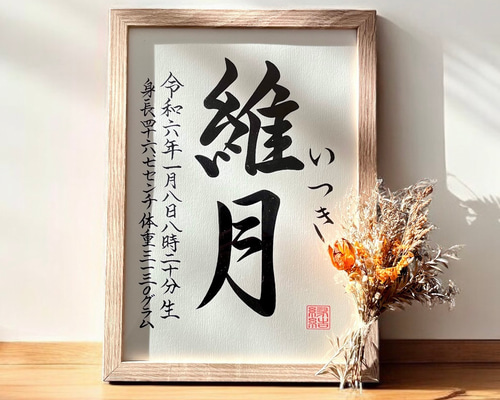 維月
いつき
令和六年一月八日八時二十分生
身長四十六.七センチ体重三一三〇グラム